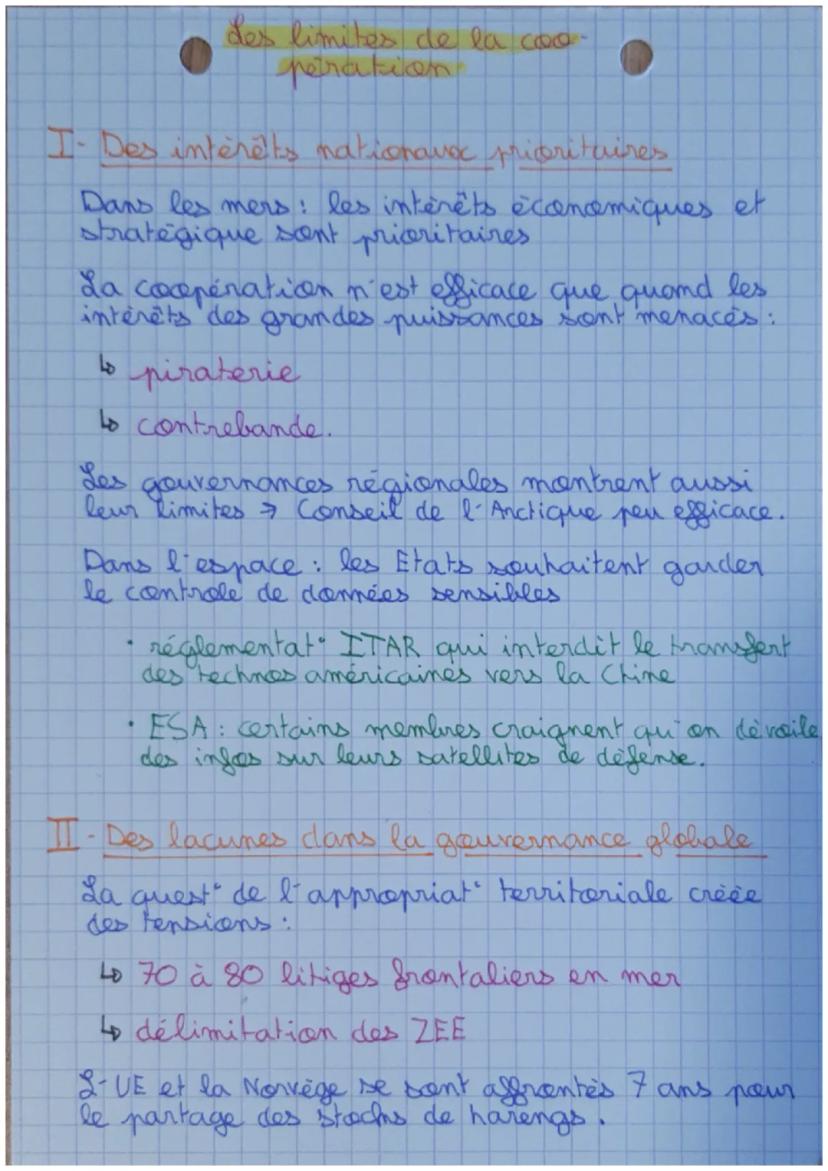 Les limites de la coo-
pération
I- Des intérêts nationaux prioritaires
Dans les mers : les intérêts économiques et
stratégique sont prioritaires
La coopération n'est efficace que quand les
intérêts des grandes puissances sont menacés :
↳ piraterie
↳ contrebande.
Les gouvernances régionales montrent aussi
leur limites → Conseil de l'Arctique peu efficace.
Dans l'espace : les Etats souhaitent garder
le controle de données sensibles
• réglementat° ITAR qui interdit le transfert
des technos américaines vers la Chine
• ESA : certains membres craignent qu'on dévoile
des infos sur leurs satellites de défense.
II - Des lacunes dans la gouvernance globale
La quest° de l'appropriat° territoriale créée
des tensions :
↳ 70 à 80 litiges frontaliers en mer
↳ délimitation des ZEE
L'UE et la Norvège se sont affrontés 7 ans pour
le partage des stocks de harengs.